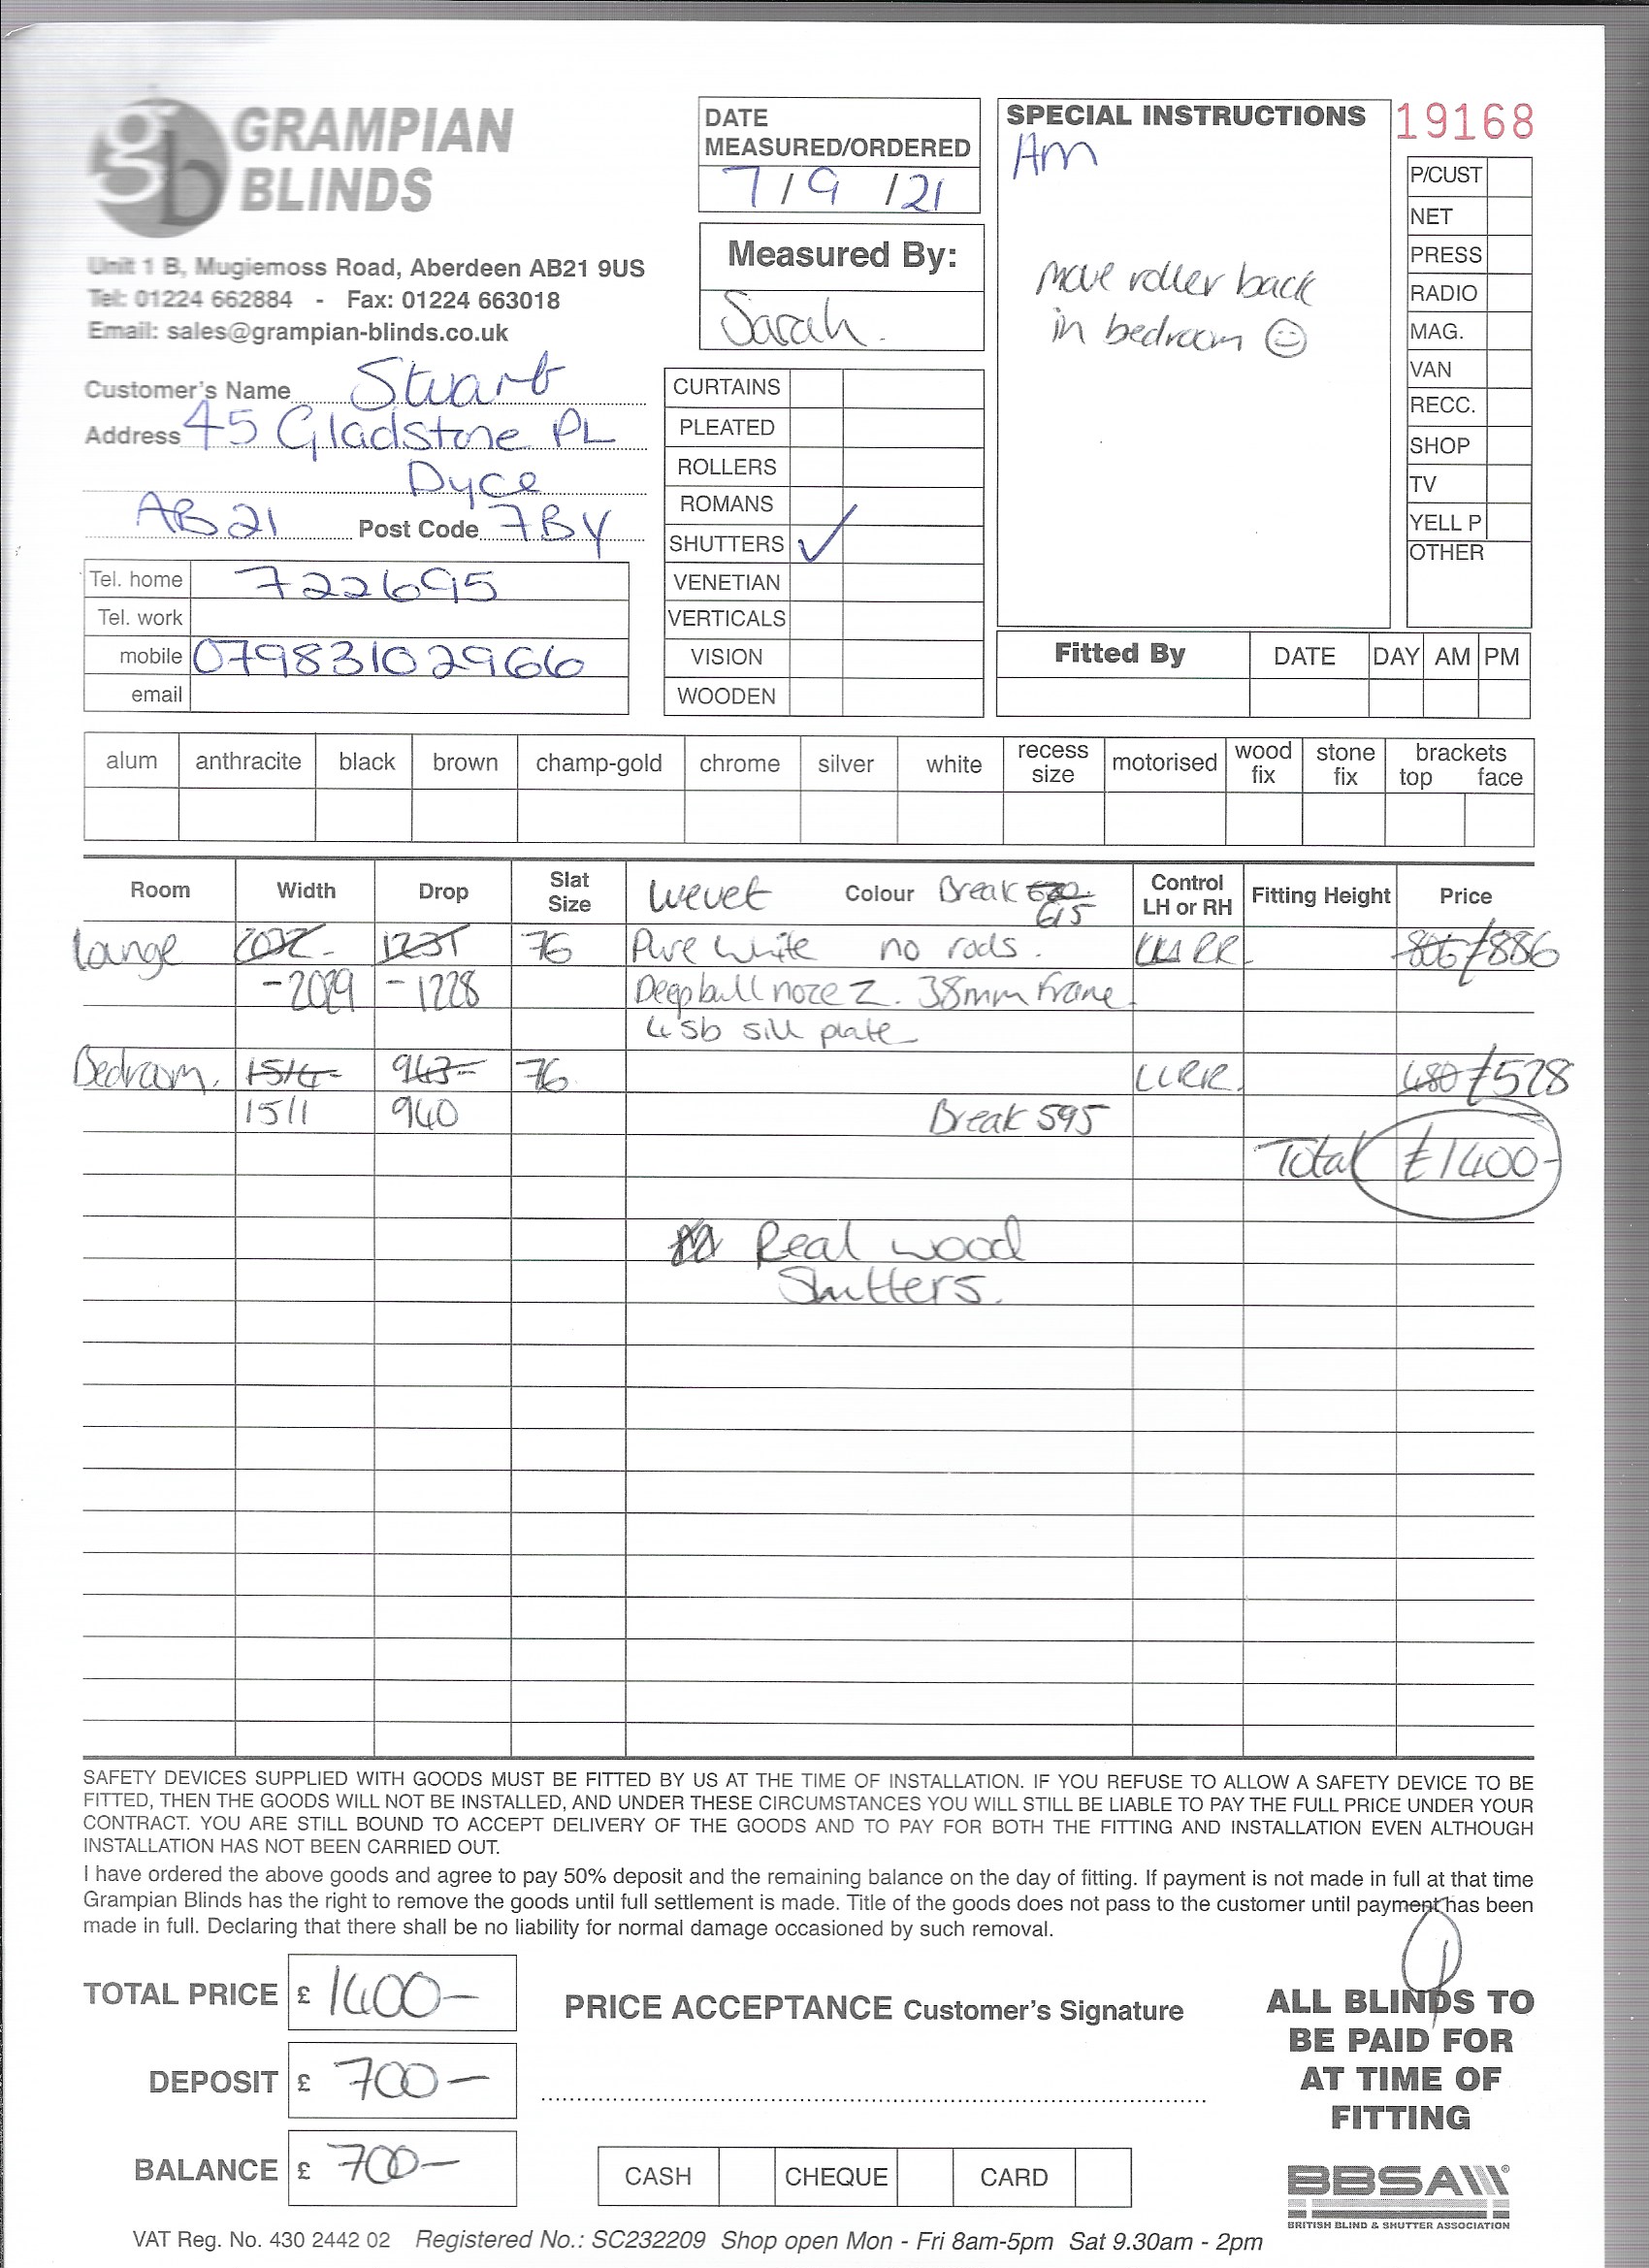 GRAMPIAN
BLINDS
Unit 1 B, Mugiemoss Road, Aberdeen AB21 9US
Tel: 01224 662884 - Fax: 01224 663018
Email: sales@grampian-blinds.co.uk
DATE
MEASURED/ORDERED
7/9/21
Measured By:
Sarah.
SPECIAL INSTRUCTIONS
Am
move roller back
in bedroom ☺
19168
P/CUST
NET
PRESS
RADIO
MAG.
VAN
RECC.
SHOP
TV
YELL P
OTHER
Customer's Name Stuart
Address 45 Gladstone PL
Dyce
AB21 Post Code 7BY
Tel. home 722695
Tel. work
mobile 07983102966
email
CURTAINS
PLEATED
ROLLERS
ROMANS
SHUTTERS ✓
VENETIAN
VERTICALS
VISION
WOODEN
Fitted By DATE DAY AM PM
alum anthracite black brown champ-gold chrome silver white recess size motorised wood fix stone fix brackets top face
Room Width Drop Slat Size Wevet Colour Break 615 Control LH or RH Fitting Height Price
Lounge 2032 1231 76 Pure White no rods. RR 806 £886
-2029 -1228 Deep bull noze Z. 38mm frame.
sill plate
Bedroom. 1514 943 76 LLRR. 480 £528
1511 940 Break 595
Total £1400-
Real wood
Shutters.
SAFETY DEVICES SUPPLIED WITH GOODS MUST BE FITTED BY US AT THE TIME OF INSTALLATION. IF YOU REFUSE TO ALLOW A SAFETY DEVICE TO BE
FITTED, THEN THE GOODS WILL NOT BE INSTALLED, AND UNDER THESE CIRCUMSTANCES YOU WILL STILL BE LIABLE TO PAY THE FULL PRICE UNDER YOUR
CONTRACT. YOU ARE STILL BOUND TO ACCEPT DELIVERY OF THE GOODS AND TO PAY FOR BOTH THE FITTING AND INSTALLATION EVEN ALTHOUGH
INSTALLATION HAS NOT BEEN CARRIED OUT.
I have ordered the above goods and agree to pay 50% deposit and the remaining balance on the day of fitting. If payment is not made in full at that time
Grampian Blinds has the right to remove the goods until full settlement is made. Title of the goods does not pass to the customer until payment has been
made in full. Declaring that there shall be no liability for normal damage occasioned by such removal.
TOTAL PRICE £ 1400-
DEPOSIT £ 700-
BALANCE £ 700-
PRICE ACCEPTANCE Customer's Signature
CASH CHEQUE CARD
ALL BLINDS TO
BE PAID FOR
AT TIME OF
FITTING
BBSA
BRITISH BLIND & SHUTTER ASSOCIATION
VAT Reg. No. 430 2442 02 Registered No.: SC232209 Shop open Mon - Fri 8am-5pm Sat 9.30am - 2pm